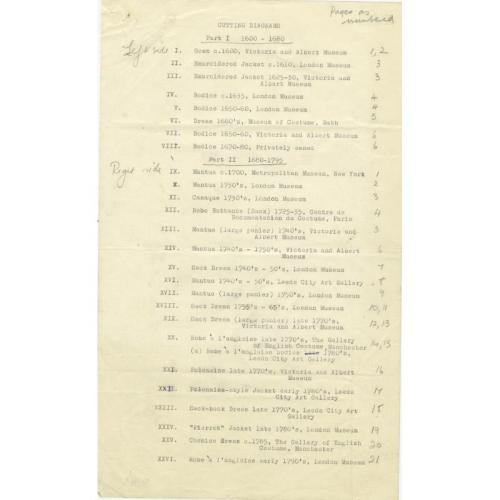 Pages as
numbered
CUTTING DIAGRAMS
Part I 1600 - 1680
Left side I. Gown c.1600, Victoria and Albert Museum 1, 2
II. Embroidered Jacket c.1610, London Museum 3
III. Embroidered Jacket 1625-30, Victoria and 3
Albert Museum
IV. Bodice c.1635, London Museum 4
V. Bodice 1650-60, London Museum 4
VI. Dress 1660's, Museum of Costume, Bath 5
VII. Bodice 1650-60, Victoria and Albert Museum 6
VIII. Bodice 1670-80, Privately owned 6
Part II 1680-1795
Right side IX. Mantua c.1700, Metropolitan Museum, New York 1
X. Mantua 1730's, London Museum 2
XI. Casaque 1730's, London Museum 3
XII. Robe Battante (Sack) 1725-35, Centre de 4
Documentation du Costume, Paris
XIII. Mantua (large panier) 1740's, Victoria and 3
Albert Museum
XIV. Mantua 1740's - 1750's, Victoria and Albert 6
Museum
XV. Sack Dress 1740's - 50's, London Museum 7
XVI. Mantua 1740's - 50's, Leeds City Art Gallery 8
XVII. Mantua (large panier) 1750's, London Museum 9
XVIII. Sack Dress 1755's - 65's, London Museum 10, 11
XIX. Sack Dress (large panier) late 1770's, 12, 13
Victoria and Albert Museum
XX. Robe à l'anglaise late 1770's, The Gallery 14, 15
of English Costume, Manchester
(a) Robe à l'anglaise bodice late 1780's,
Leeds City Art Gallery
XXI. Polonaise late 1770's, Victoria and Albert 16
Museum
XXII. Polonaise-style Jacket early 1780's, Leeds 17
City Art Gallery
XXIII. Sack-back Dress late 1770's, Leeds City Art 18
Gallery
XXIV. "Pierrot" Jacket late 1780's, London Museum 19
XXV. Chemise Dress c.1785, The Gallery of English 20
Costume, Manchester
XXVI. Robe à l'anglaise early 1790's, London Museum 21